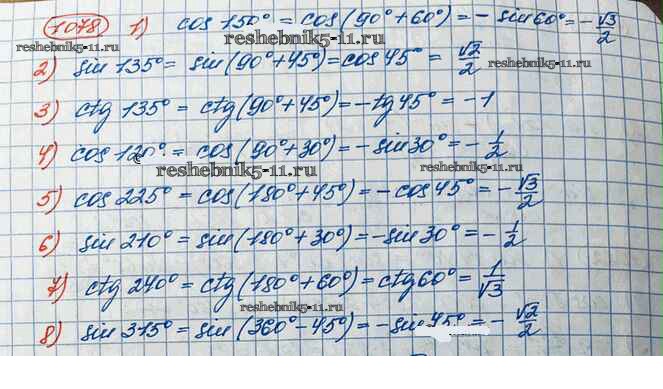 1078 1) cos 150° = cos(90°+60°) = - sin60° = - √3/2
reshebnik5-11.ru
2) sin 135° = sin(90°+45°) = cos 45° = √2/2
reshebnik5-11.ru
3) ctg 135° = ctg(90°+45°) = -tg45° = -1
reshebnik5-11.ru
4) cos 120° = cos(90°+30°) = -sin30° = - 1/2
reshebnik5-11.ru reshebnik5-11.ru
5) cos 225° = cos(180°+45°) = -cos 45° = - √3/2
6) sin 210° = sin(180°+30°) = -sin 30° = - 1/2
7) ctg 240° = ctg(180°+60°) = ctg 60° = 1/√3
reshebnik5-11.ru
8) sin 315° = sin(360°-45°) = -sin 45° = - √2/2